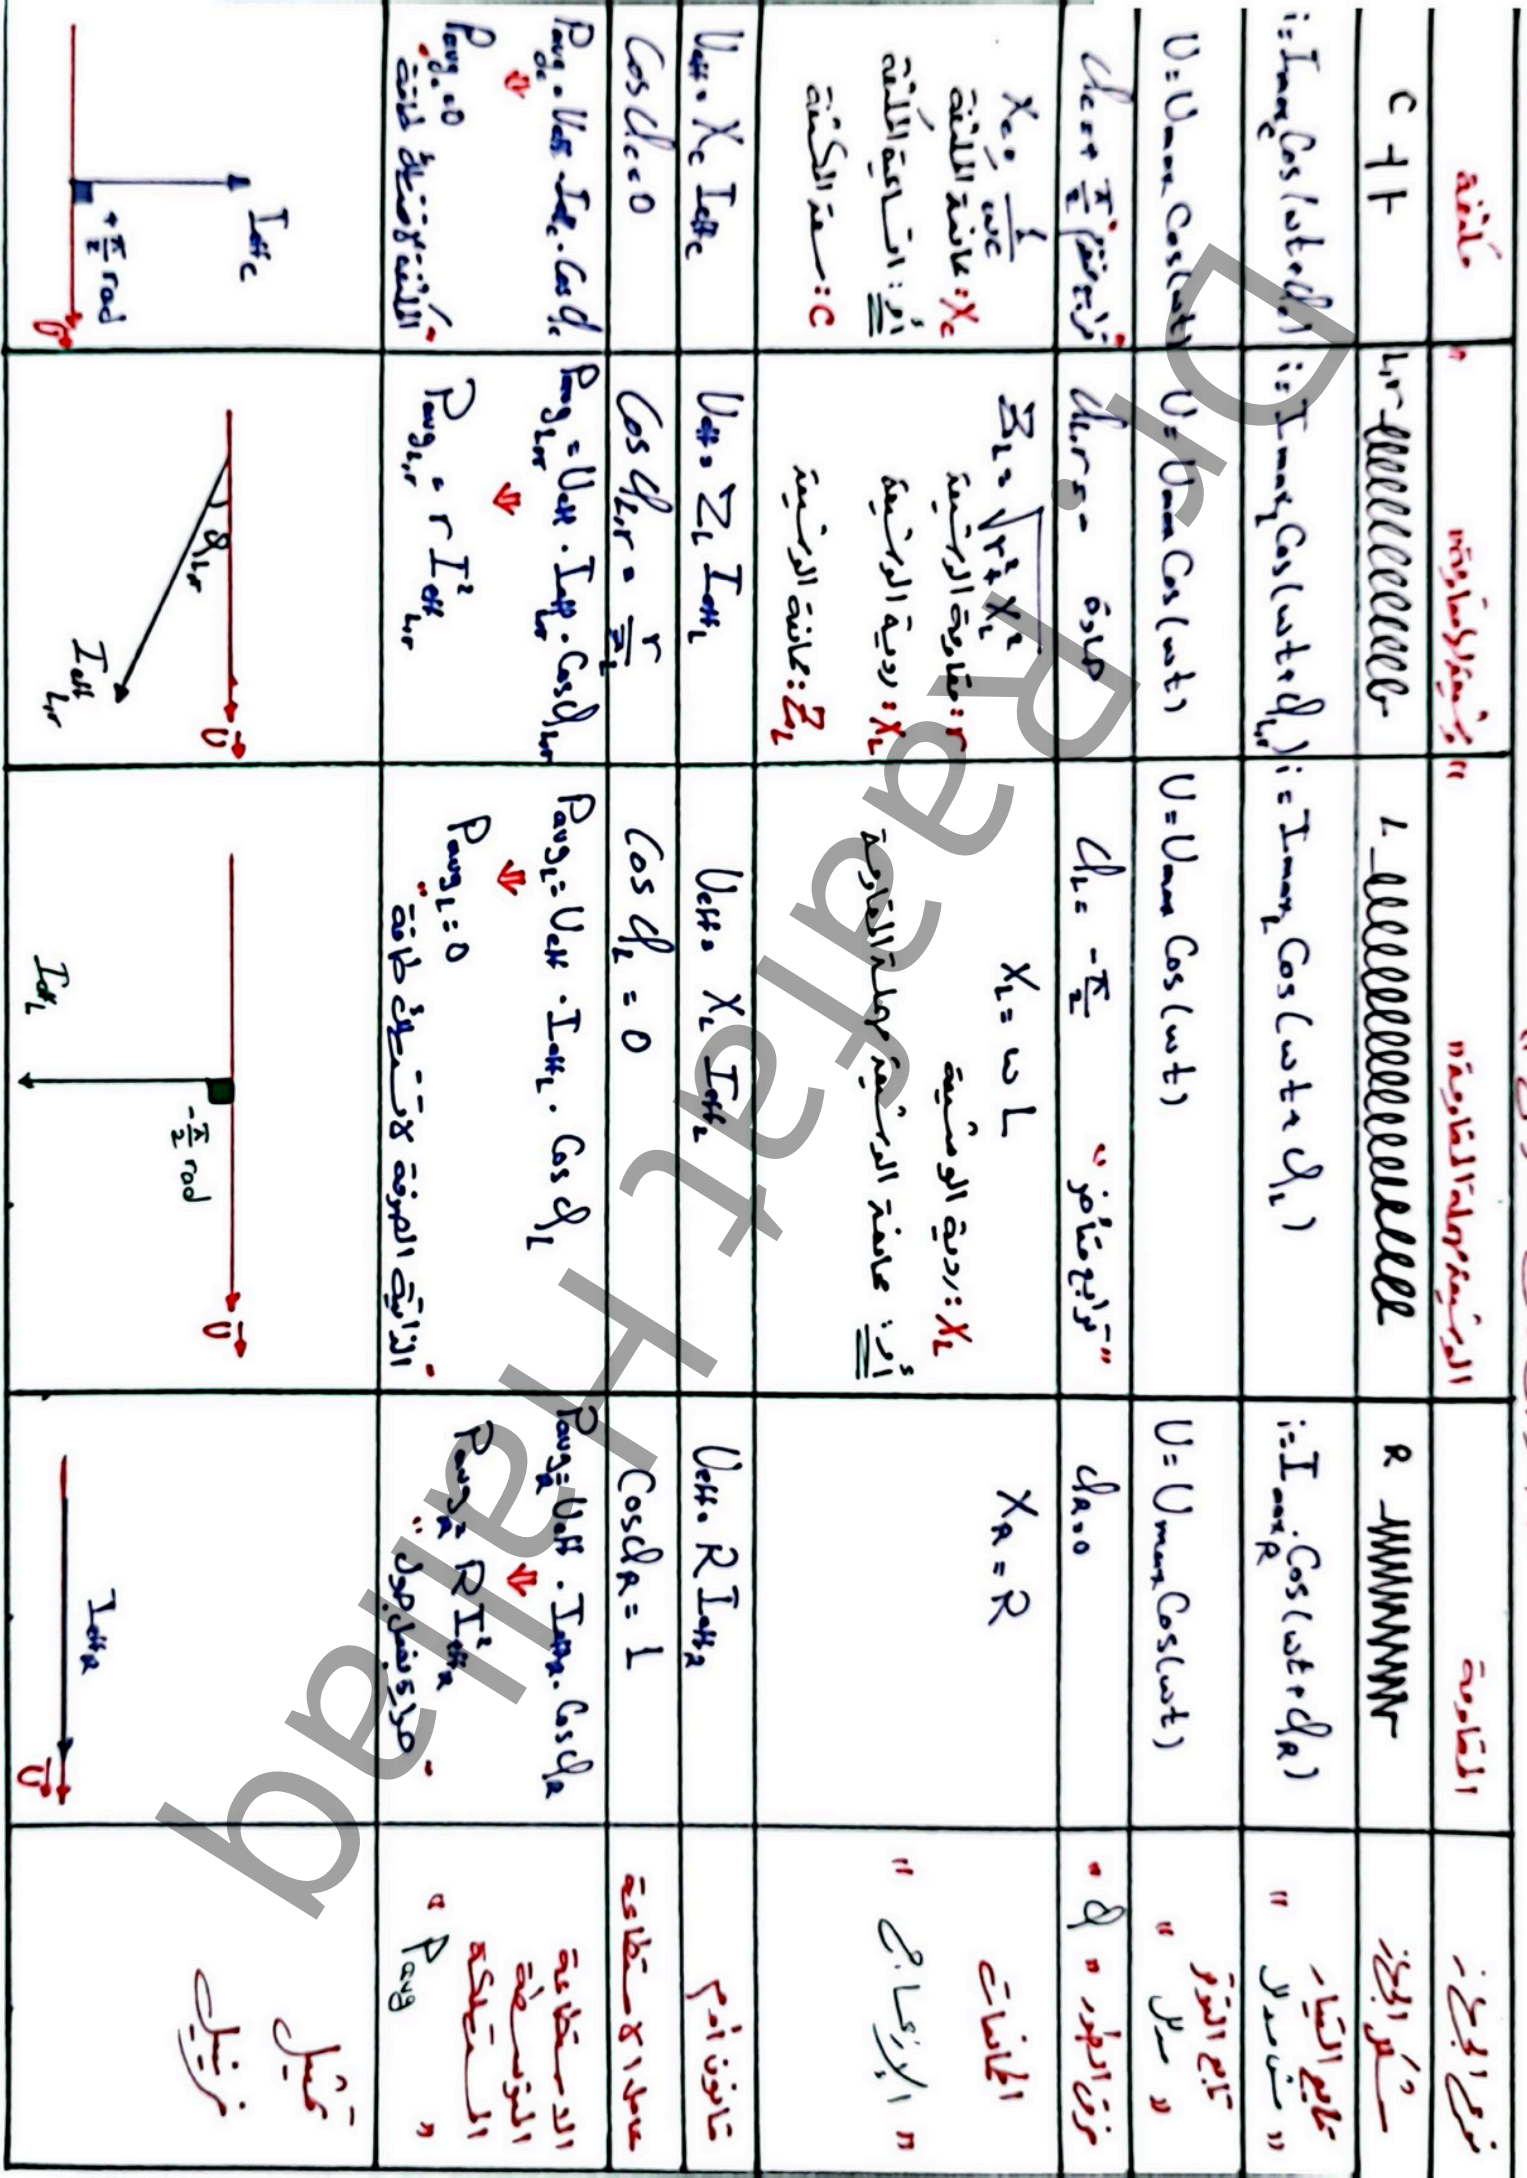 نوع الجزء
المقاومة
الوشيعة مهملة المقاومة "
" وشيعة لها مقاومة "
مكثفة
شكل الجزء
R
L
L,r
C
تابع التيار
i = Imax_R . Cos(ωt + φ_R)
i = Imax_L Cos(ωt + φ_L)
i = Imax_L Cos(ωt + φ_L,r)
i = Imax_C Cos(ωt + φ_C)
تابع التوتر
U = Umax Cos(ωt)
U = Umax Cos(ωt)
U = Umax Cos(ωt)
U = Umax Cos(ωt)
فرق الطور " φ "
φ_R = 0
φ_L = -π/2 " ترابع متأخر "
φ_L,r = - حادة
φ_C = + π/2 " ترابع متقدم "
الممانعات
X_R = R
X_L = ω L
X_L : ردية الوشيعة
أو : ممانعة الوشيعة مهملة المقاومة
Z_L = √(r² + X_L²)
r : مقاومة الوشيعة
X_L : ردية الوشيعة
Z_L : ممانعة الوشيعة
X_C = 1/ωC
X_C : ممانعة المكثفة
أو : اتساعية المكثفة
C : سعة المكثفة
قانون أوم
Ueff = R Ieff_R
Ueff = X_L Ieff_L
Ueff = Z_L Ieff_L
Ueff = X_C Ieff_C
عامل الاستطاعة
Cos φ_R = 1
Cos φ_L = 0
Cos φ_L,r = r/Z_L
Cos φ_C = 0
الاستطاعة
المتوسطة
المستهلكة
" Pavg "
Pavg_R = Ueff . Ieff_R . Cos φ_R
⇓
Pavg_R = R I²eff_R
" حرارة بفعل جول "
Pavg_L = Ueff . Ieff_L . Cos φ_L
⇓
Pavg_L = 0
" الذاتية الصرفة لا تستهلك طاقة "
Pavg_L,r = Ueff . Ieff_L,r . Cos φ_L,r
⇓
Pavg_L,r = r I²eff_L,r
Pavg_C = Ueff . Ieff_C . Cos φ_C
⇓
Pavg_C = 0
" المكثفة لا تستهلك طاقة "
تمثيل
فرينل
Ieff_R
U
Ieff_L
-π/2 rad
U
φ_L,r
Ieff_L,r
U
Ieff_C
+π/2 rad
U
Dr. Raafat Hallaq